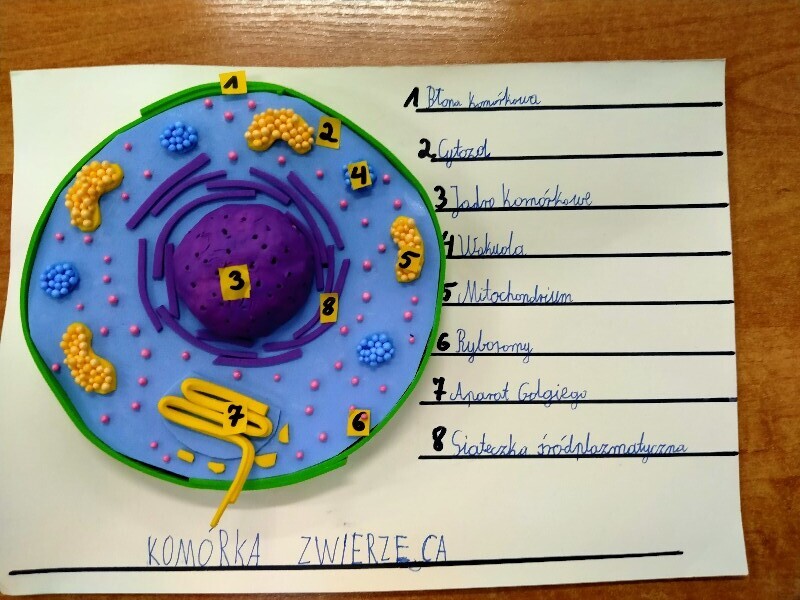 1 Błona komórkowa
2 Cytozol
3 Jądro komórkowe
4 Wakuola
5 Mitochondrium
6 Rybosomy
7 Aparat Golgiego
8 Siateczka śródplazmatyczna
1
2
4
5
3
8
7
6
KOMÓRKA ZWIERZĘCA